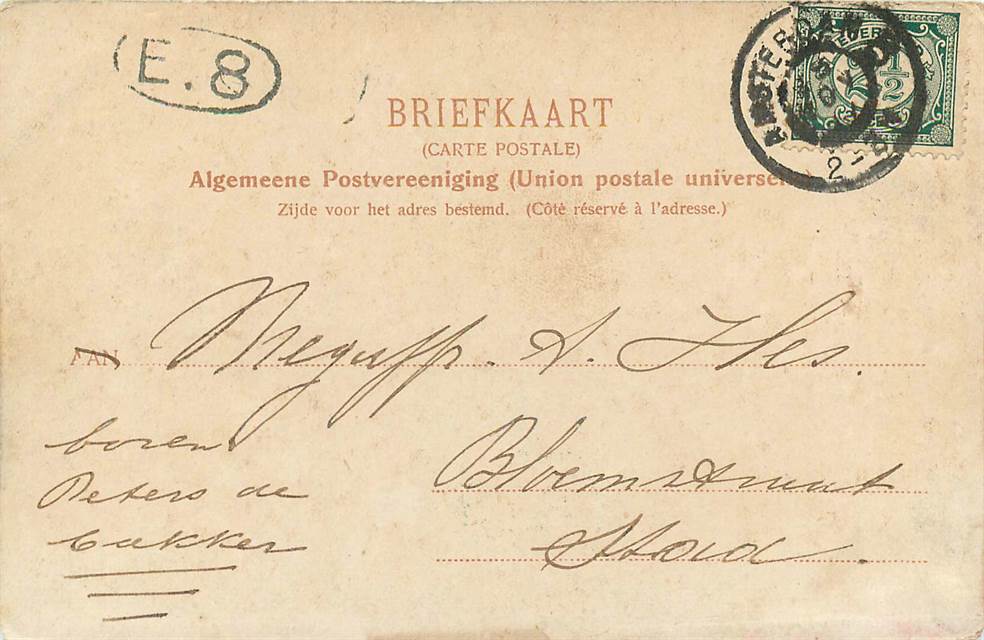 E.8
AMSTERDAM
2
NEDERLAND
2 1/2
CENT
BRIEFKAART
(CARTE POSTALE)
Algemeene Postvereeniging (Union postale universel
Zijde voor het adres bestemd. (Côté réservé à l'adresse.)
AAN Mejuffr. A. Iles.
boven
Peters de
bakker
Bloemstraat
Stad.